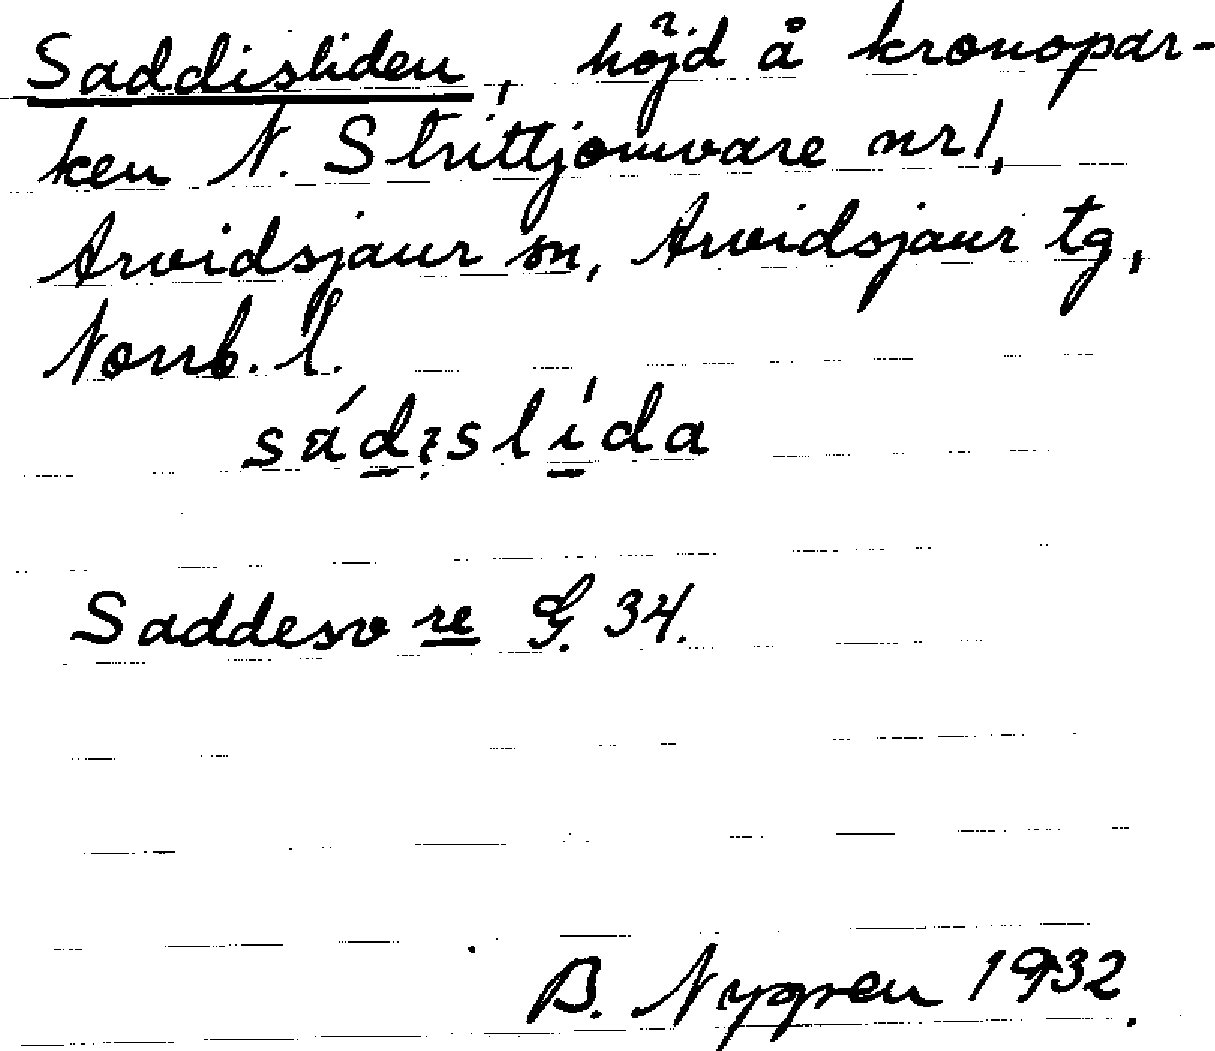 Saddisliden, höjd å kronopar-
ken N. Strittjomvare nr 1,
Arvidsjaur sn, Arvidsjaur tg,
Norrb. l.
Saddesvare G. 34.
B. Nygren 1932.